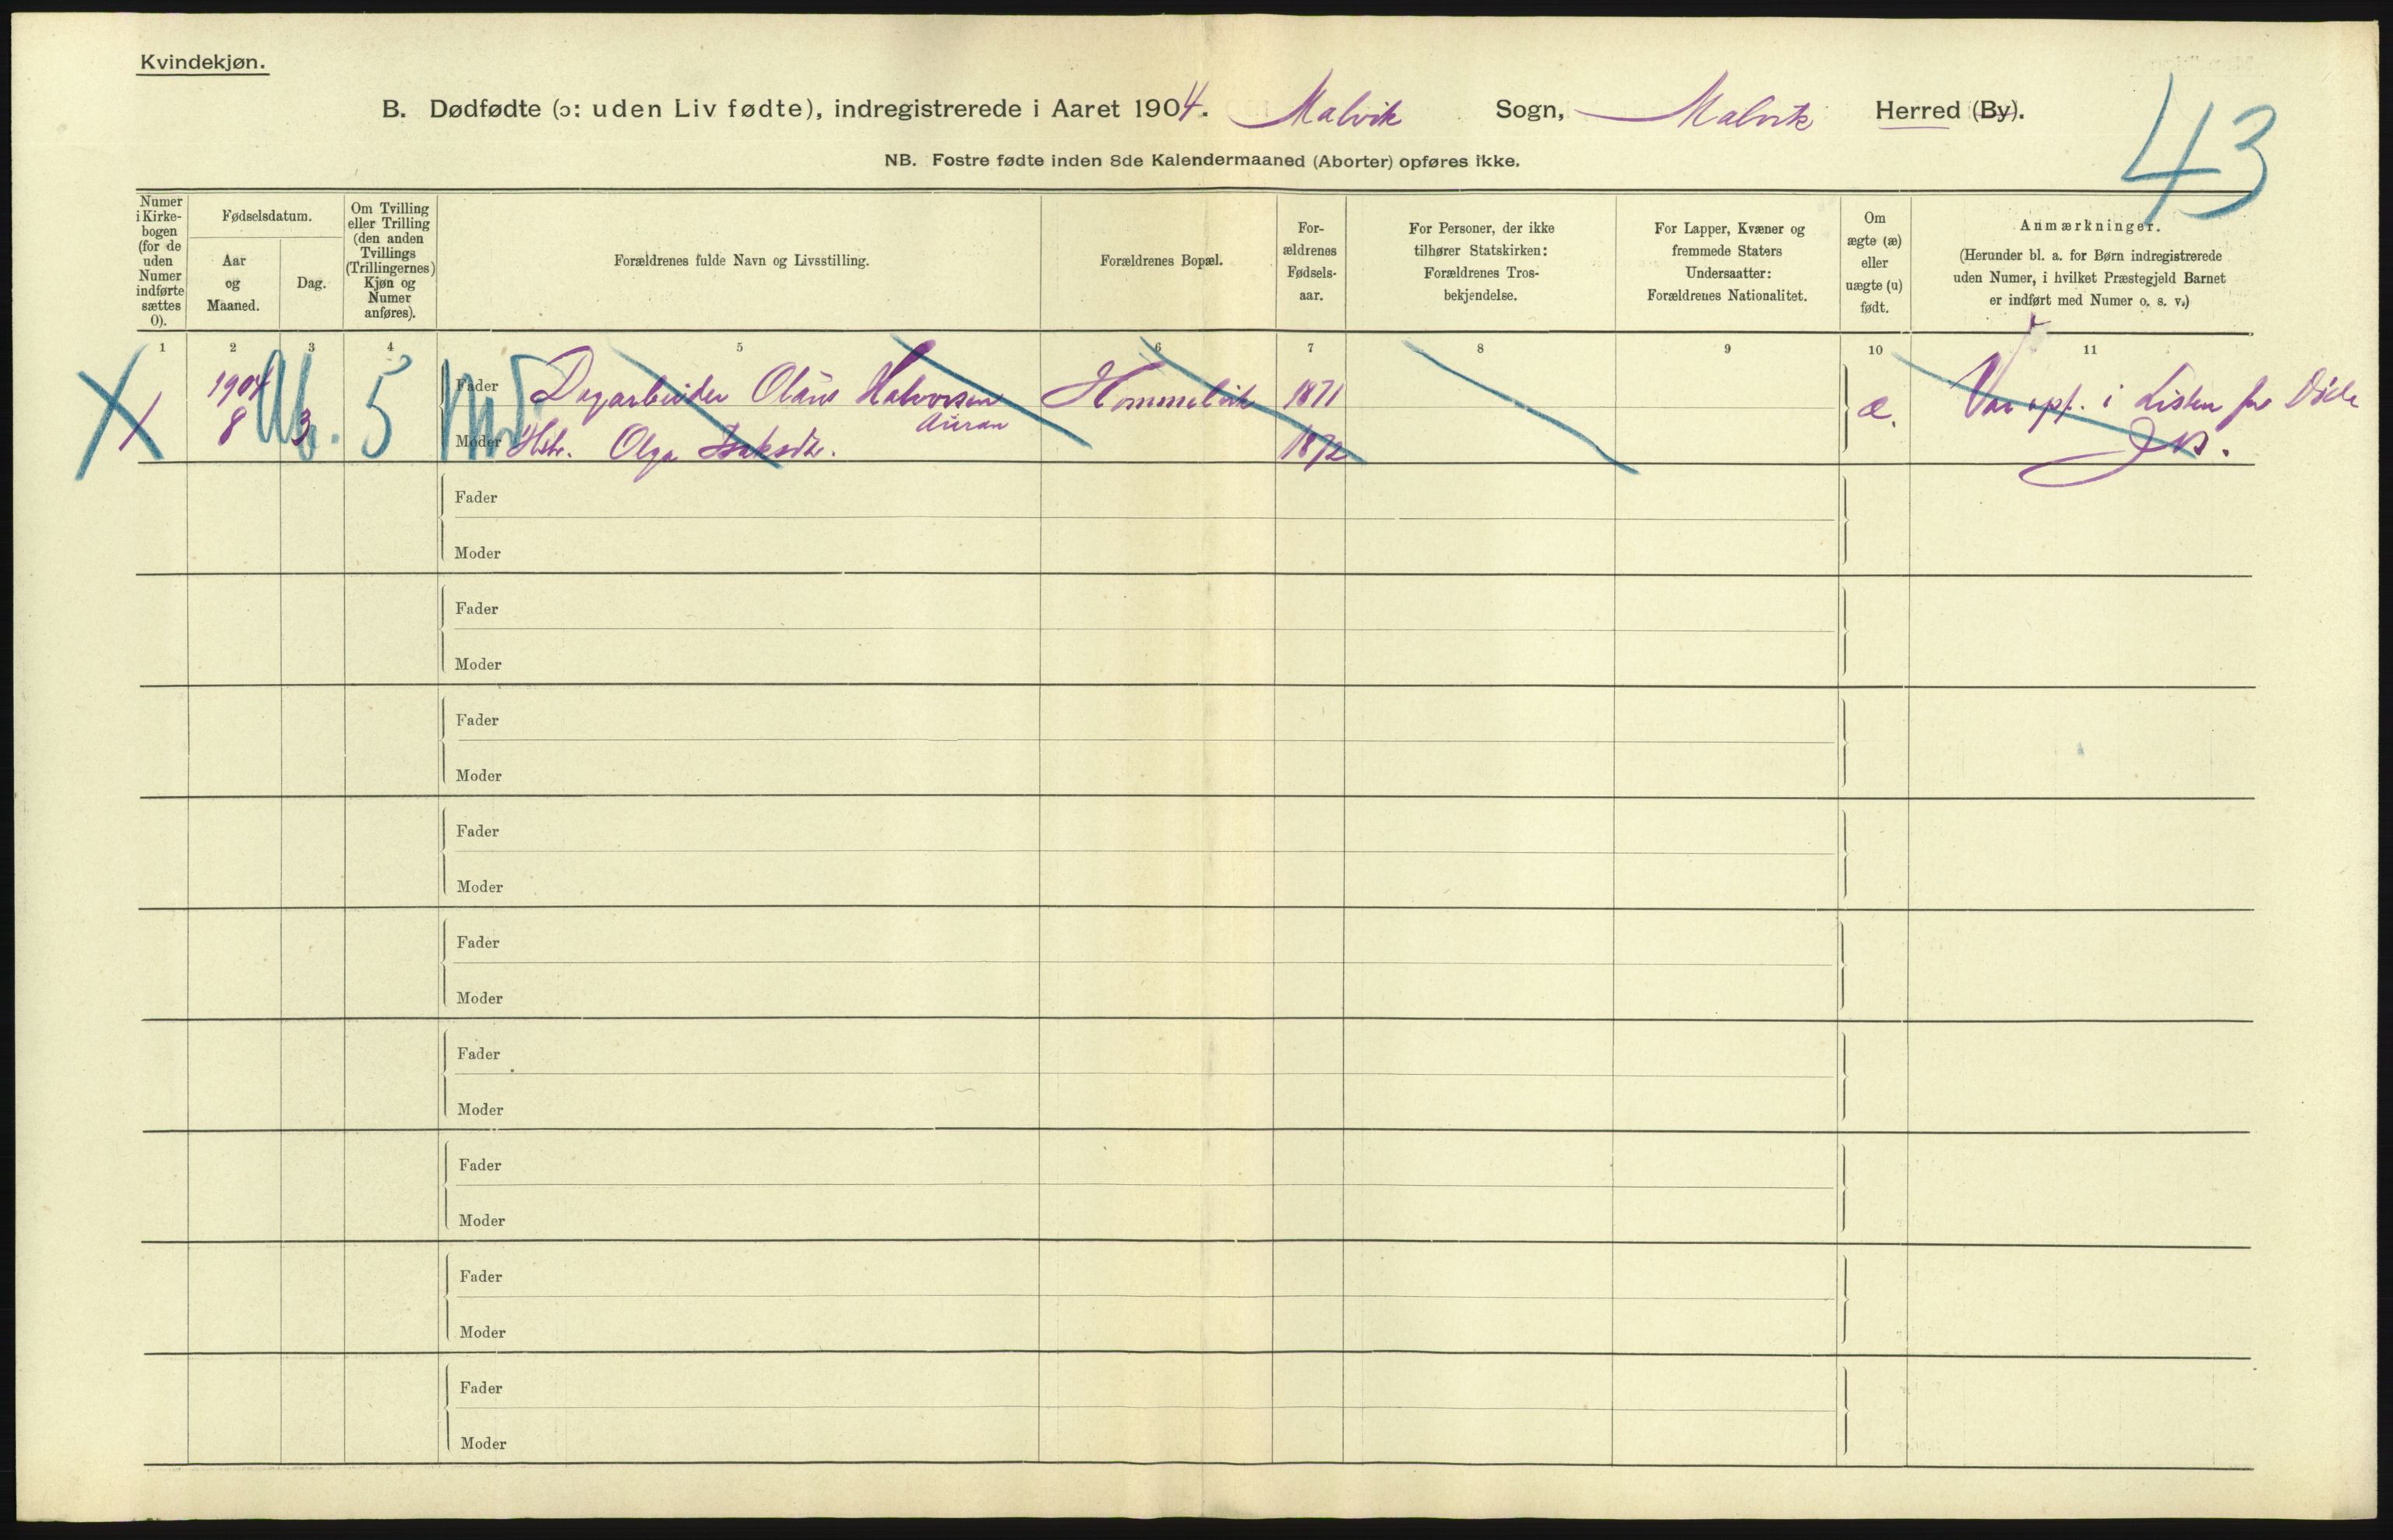 Kvindekjøn.
B. Dødfødte (ɔ: uden Liv fødte), indregistrerede i Aaret 1904. Malvik Sogn, Malvik Herred (By).
43
NB. Fostre fødte inden 8de Kalendermaaned (Aborter) opføres ikke.
Numer i Kirkebogen (for de uden Numer indførte sættes 0).
Fødselsdatum.
Aar og Maaned.
Dag.
Om Tvilling eller Trilling (den anden Tvillings (Trillingernes) Kjøn og Numer anføres).
Forældrenes fulde Navn og Livsstilling.
Forældrenes Bopæl.
Forældrenes Fødselsaar.
For Personer, der ikke tilhører Statskirken: Forældrenes Trosbekjendelse.
For Lapper, Kvæner og fremmede Staters Undersaatter: Forældrenes Nationalitet.
Om ægte (æ) eller uægte (u) født.
Anmærkninger.
(Herunder bl. a. for Børn indregistrerede uden Numer, i hvilket Præstegjeld Barnet er indført med Numer o. s. v.)
1 2 3 4 5 6 7 8 9 10 11
1904 5 Fader Dagarbeider Olaus Halvorsen Hommelvik 1871
Auran
1 8 3 Moder Hstr. Olga Isaksdtr. 1872 æ.
Var opf. i Listen for Døde
Fader
Moder
Fader
Moder
Fader
Moder
Fader
Moder
Fader
Moder
Fader
Moder
Fader
Moder
Fader
Moder
Fader
Moder